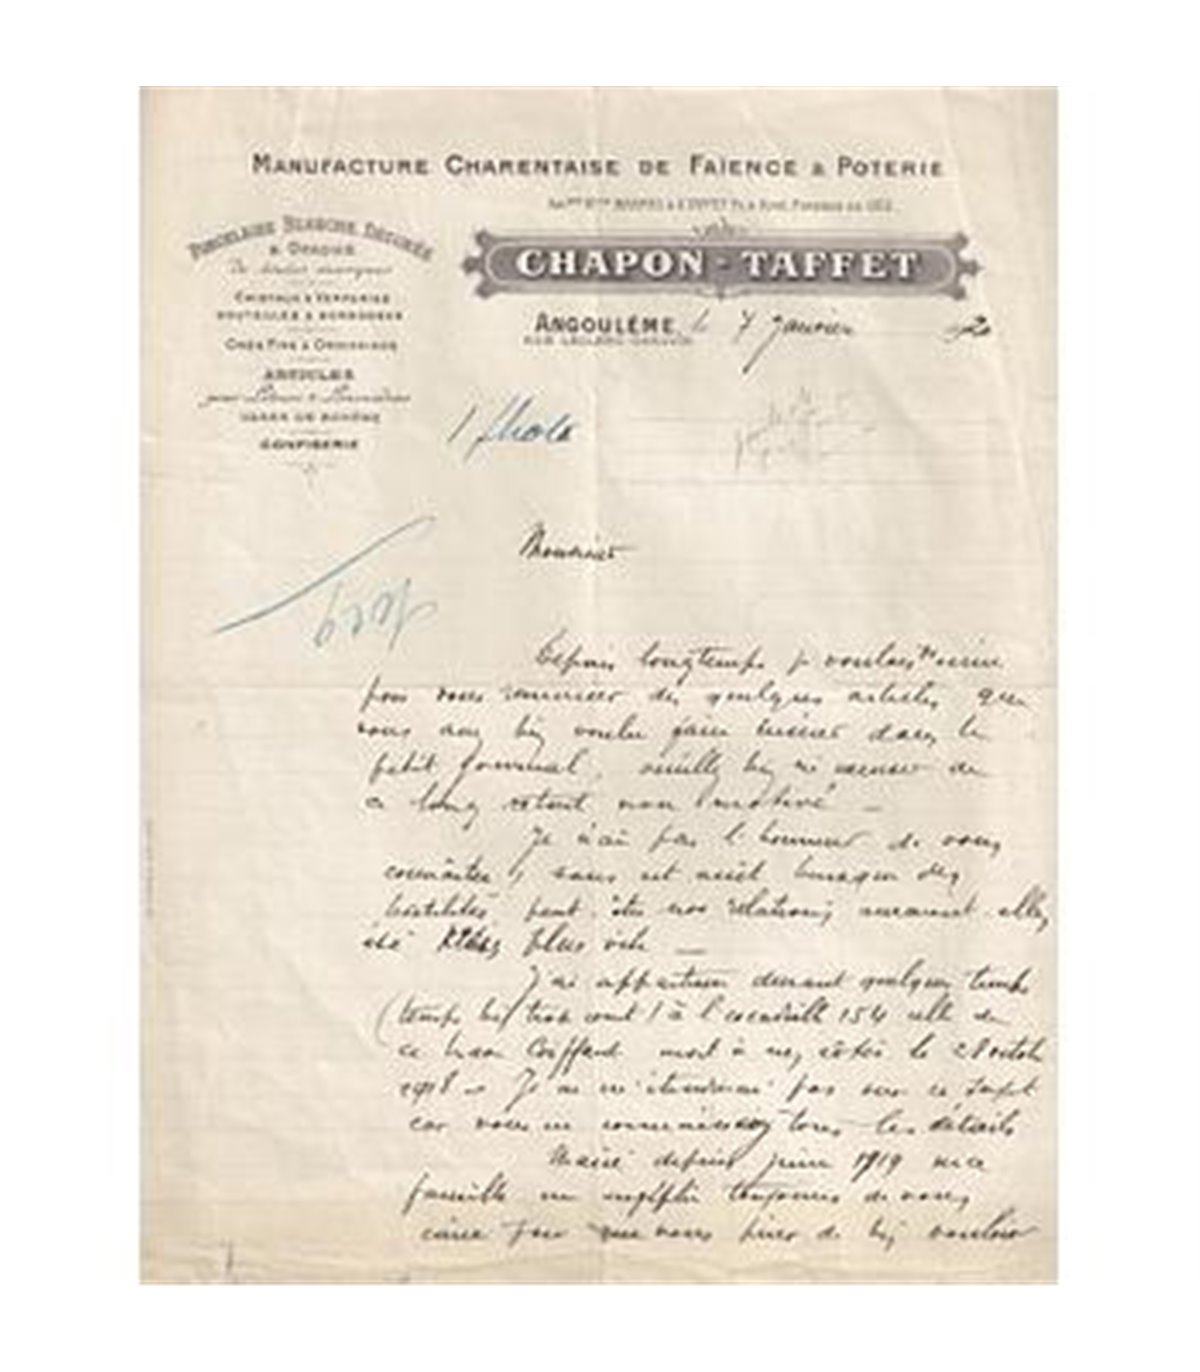 MANUFACTURE CHARENTAISE DE FAÏENCE & POTERIE
CHAPON - TAFFET
ANGOULÊME, le 7 Janvier 1920
PORCELAINE BLANCHE, DÉCORÉE
& OPAQUE
De toutes marques
CRISTAUX & VERRERIES
BOUTEILLES & BORDEAUX
GRÈS FINS & ORDINAIRES
ARTICLES
pour
VERRE DE BOHÊME
CONFISERIE
1 photo
Monsieur
Depuis longtemps je voulais écrire
pour vous remercier des quelques articles que
vous avez bien voulu faire insérer dans le
petit journal, veuillez bien m'excuser de
ce long retard non motivé —
Je n'ai pas l'honneur de vous
connaître, sans cet arrêt brusque des
hostilités peut être nos relations auraient elles
été plus vite —
J'ai appartenu durant quelque temps
(temps bien trop court) à l'escadrille 154 celle de
ce brave Coiffard mort à mes côtés le 28 octobre
1918 — Je ne m'étendrai pas sur ce sujet
car vous en connaissez tous les détails
Marié depuis juin 1919 ma
famille me toujours de vous
écrire pour vous prier de bien vouloir